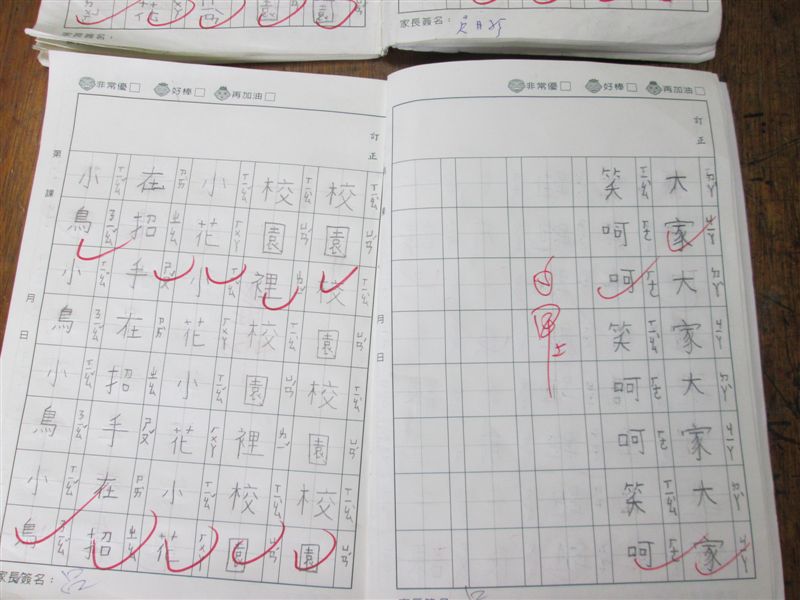 家長簽名：
家長簽名：
非常優 好棒 再加油
訂正
大家大家大家大家
ㄉㄚˋ ㄐㄧㄚ ㄉㄚˋ ㄐㄧㄚ ㄉㄚˋ ㄐㄧㄚ ㄉㄚˋ ㄐㄧㄚ
笑呵呵笑呵呵笑呵
ㄒㄧㄠˋ ㄏㄜ ㄏㄜ ㄒㄧㄠˋ ㄏㄜ ㄏㄜ ㄒㄧㄠˋ ㄏㄜ
月 日
非常優 好棒 再加油
訂正
校園校園校園校園
ㄒㄧㄠˋ ㄩㄢˊ ㄒㄧㄠˋ ㄩㄢˊ ㄒㄧㄠˋ ㄩㄢˊ ㄒㄧㄠˋ ㄩㄢˊ
校園裡校園裡校園
ㄒㄧㄠˋ ㄩㄢˊ ㄌㄧˇ ㄒㄧㄠˋ ㄩㄢˊ ㄌㄧˇ ㄒㄧㄠˋ ㄩㄢˊ
小花小花小花小花
ㄒㄧㄠˇ ㄏㄨㄚ ㄒㄧㄠˇ ㄏㄨㄚ ㄒㄧㄠˇ ㄏㄨㄚ ㄒㄧㄠˇ ㄏㄨㄚ
在招手在招手在招
ㄗㄞˋ ㄓㄠ ㄕㄡˇ ㄗㄞˋ ㄓㄠ ㄕㄡˇ ㄗㄞˋ ㄓㄠ
小鳥小鳥小鳥小鳥
ㄒㄧㄠˇ ㄋㄧㄠˇ ㄒㄧㄠˇ ㄋㄧㄠˇ ㄒㄧㄠˇ ㄋㄧㄠˇ ㄒㄧㄠˇ ㄋㄧㄠˇ
第 課
月 日
家長簽名：